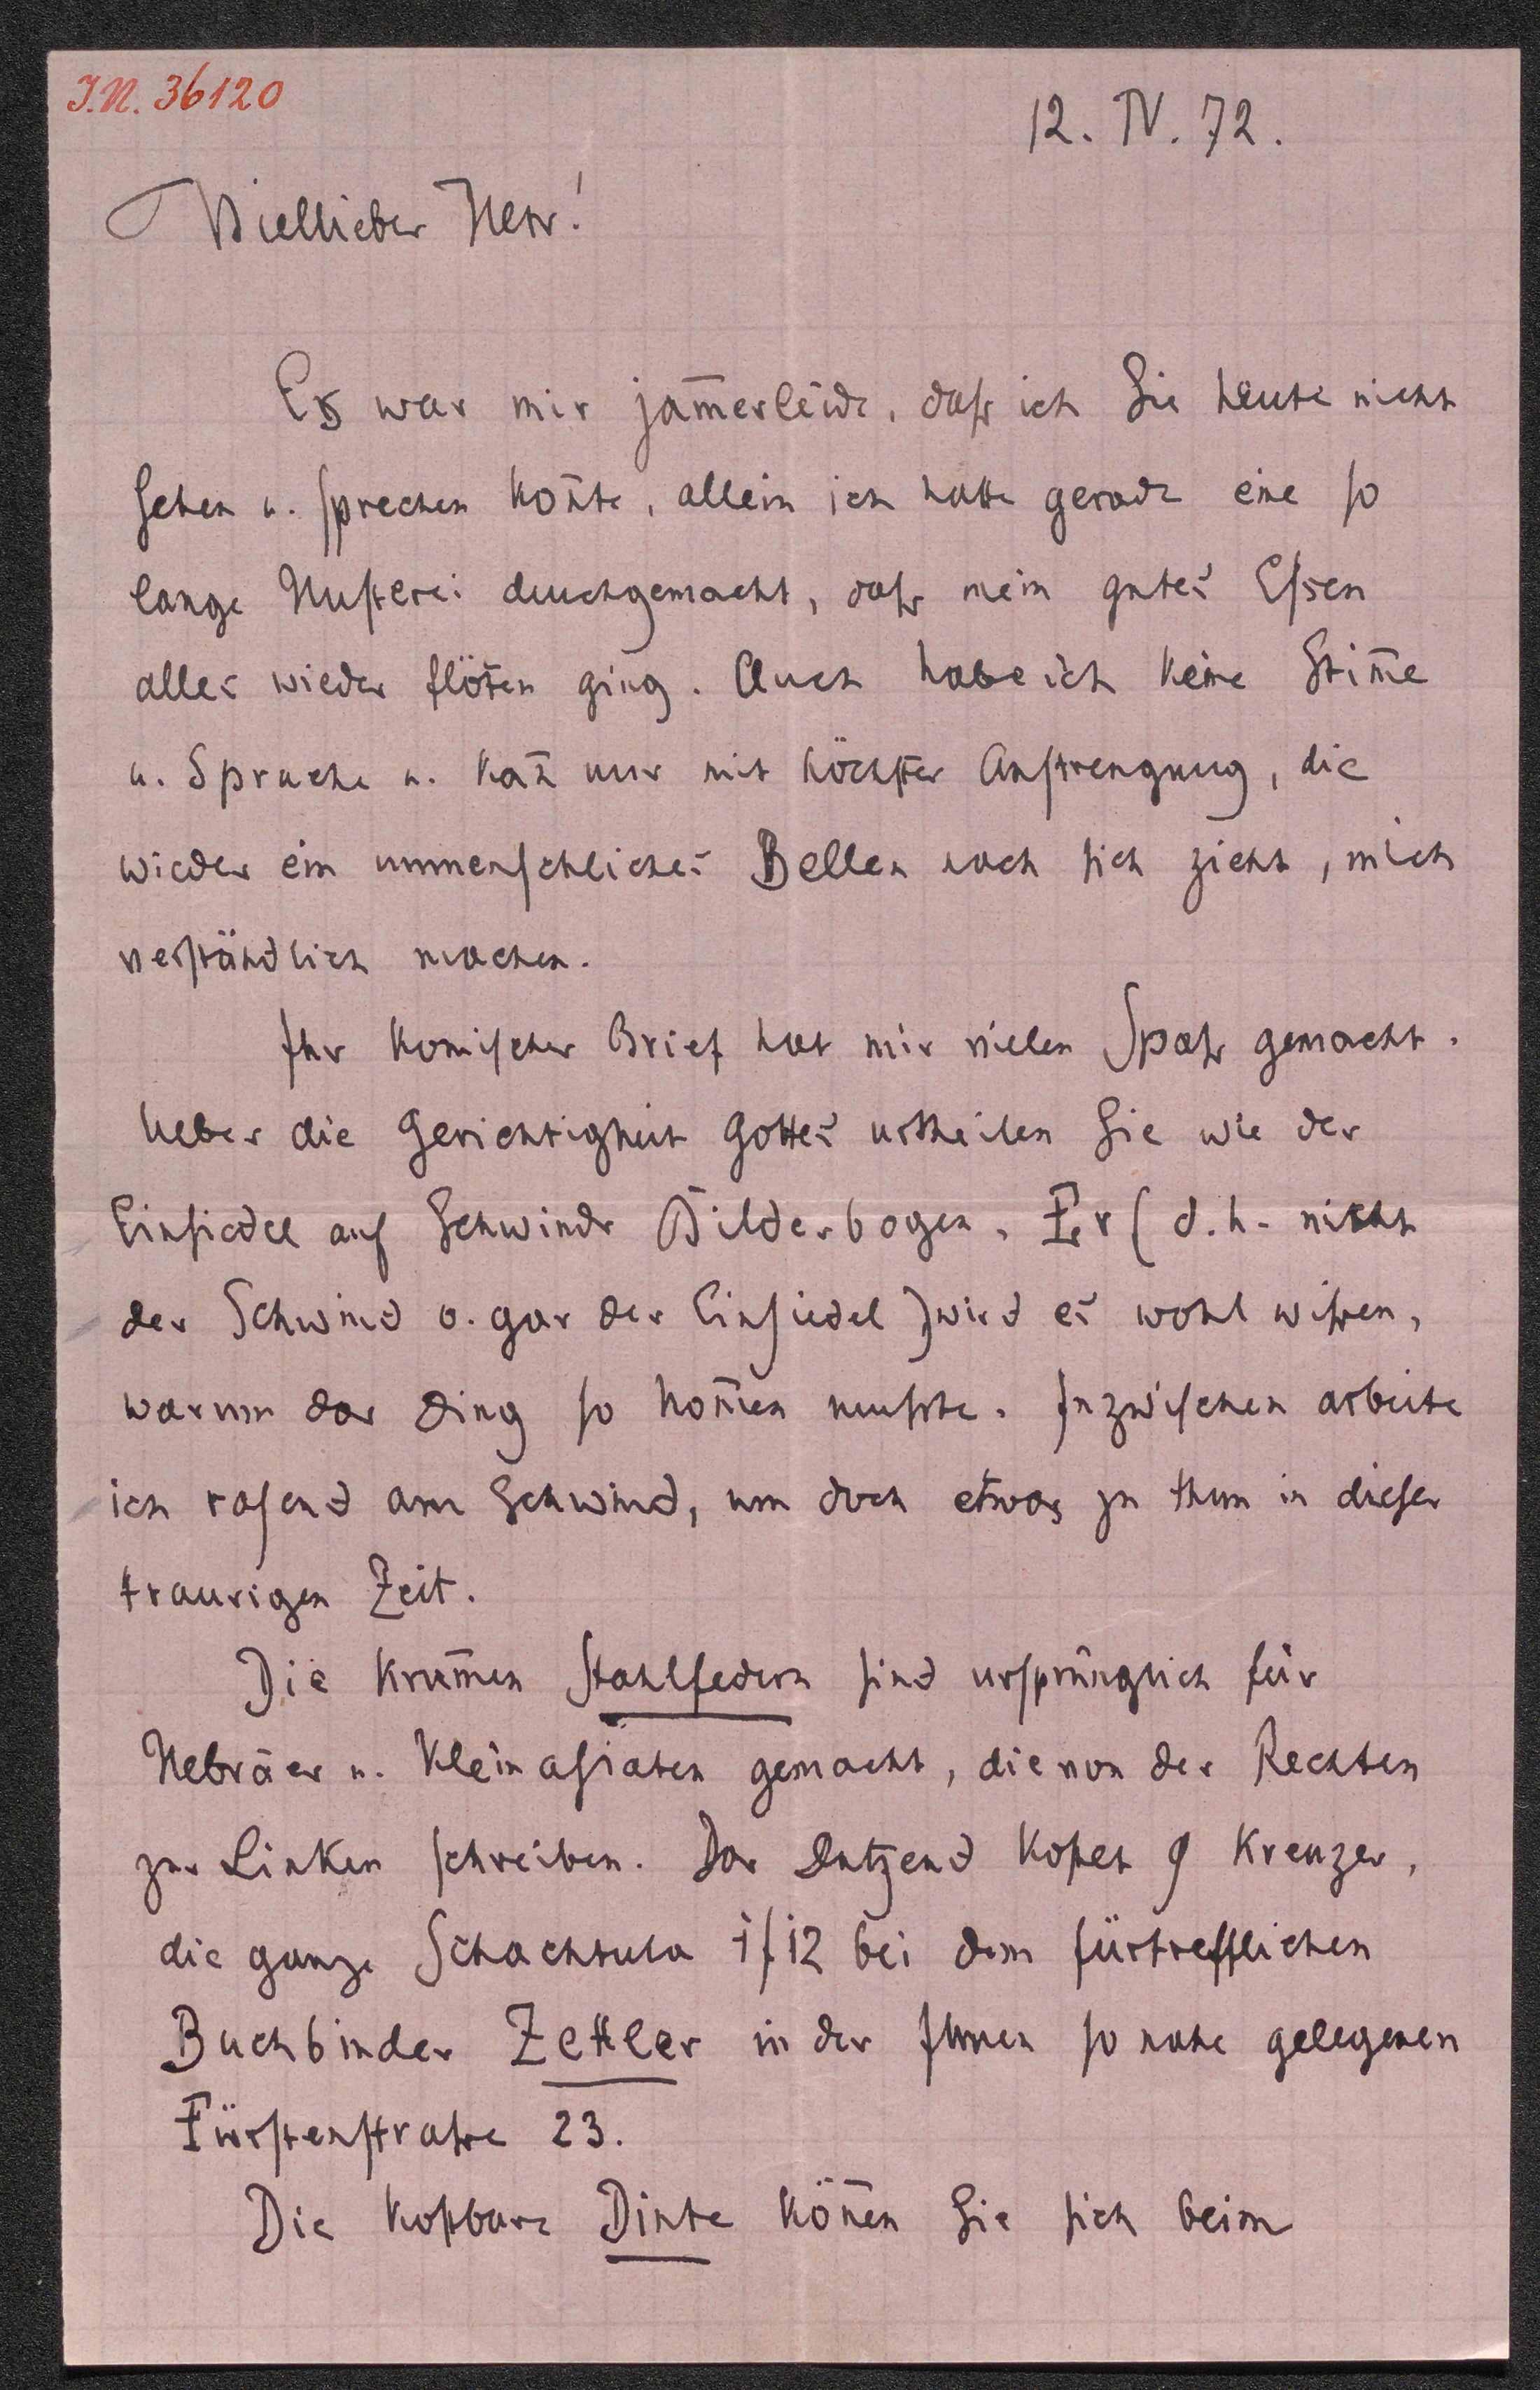 I.N. 36120
12. IV. 72.
Viellieber Herr!
Es war mir jam̅erleid, daß ich Sie heute nicht
sehen u. sprechen kon̅te, allein ich hatte gerade eine so
lange Husterei durchgemacht, daß mein gutes Essen
alles wieder flöten ging. Auch habe ich keine Stim̅e
u. Sprache u. kan̅ nur mit höchster Anstrengung, die
wieder ein unmenschliches Bellen nach sich zieht, mich
verständlich machen.
Ihr komischer Brief hat mir vielen Spaß gemacht.
Ueber die Gerichtigkeit Gottes urtheilen Sie wie der
Einsiedel auf Schwinds Bilderbogen. Er (d.h. nicht
der Schwind o. gar der Einsiedel) wird es wohl wissen,
warum das Ding so kom̅en musste. Inzwischen arbeite
ich rasend am Schwind, um doch etwas zu thun in dieser
traurigen Zeit.
Die krum̅en Stahlfedern sind ursprünglich für
Hebräer u. Kleinasiaten gemacht, die von der Rechten
zur Linken schreiben. Das Dutzend kostet 9 Kreuzer,
die ganze Schachtula 1f12 bei dem fürtrefflichen
Buchbinder Zettler in der Ihnen so nahe gelegenen
Fürstenstraße 23.
Die kostbare Dinte kön̅en Sie sich beim